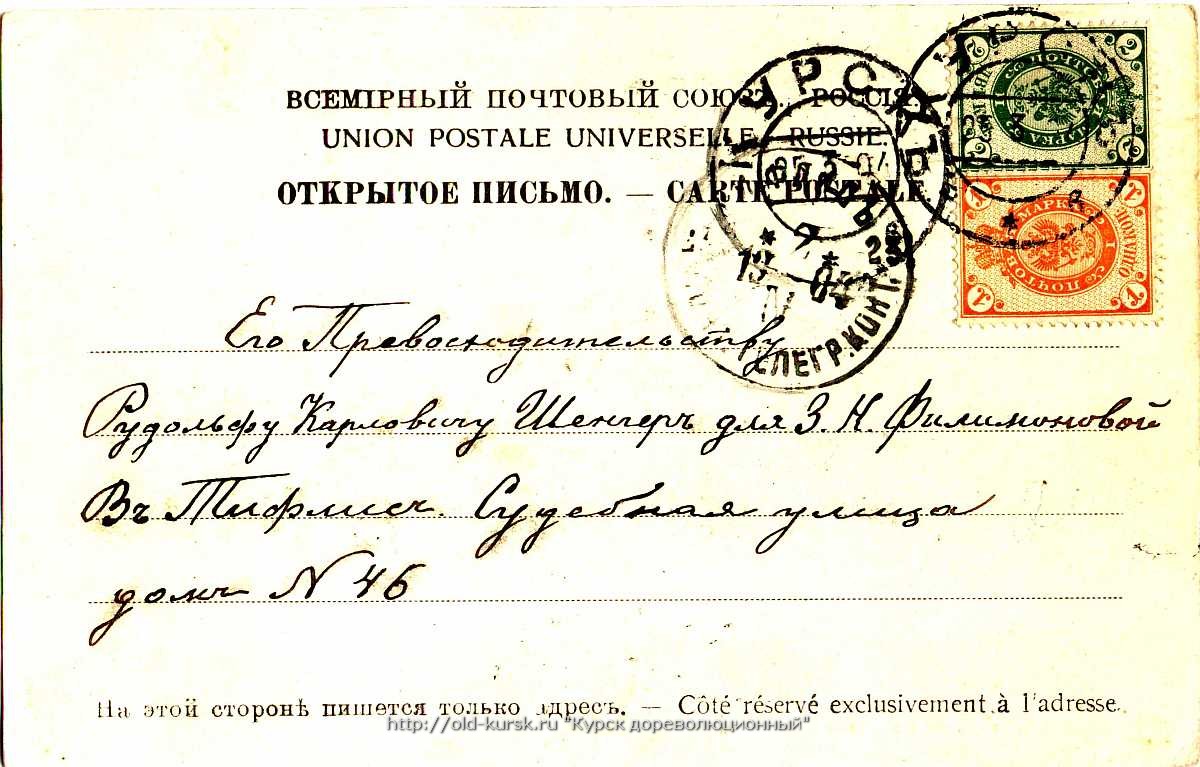 ВСЕМІРНЫЙ ПОЧТОВЫЙ СОЮЗЪ. РОССІЯ.
UNION POSTALE UNIVERSELLE. RUSSIE.
ОТКРЫТОЕ ПИСЬМО. — CARTE POSTALE.
КУРСКЪ
ТЕЛЕГР. КОНТ.
Его Превосходительству
Рудольфу Карловичу Шенгеръ для З. Н. Филимоновой
Въ Тифлисъ. Судебная улица
домъ N 46
На этой сторонѣ пишется только адресъ. — Côté réservé exclusivement à l'adresse.
http://old-kursk.ru "Курск дореволюционный"